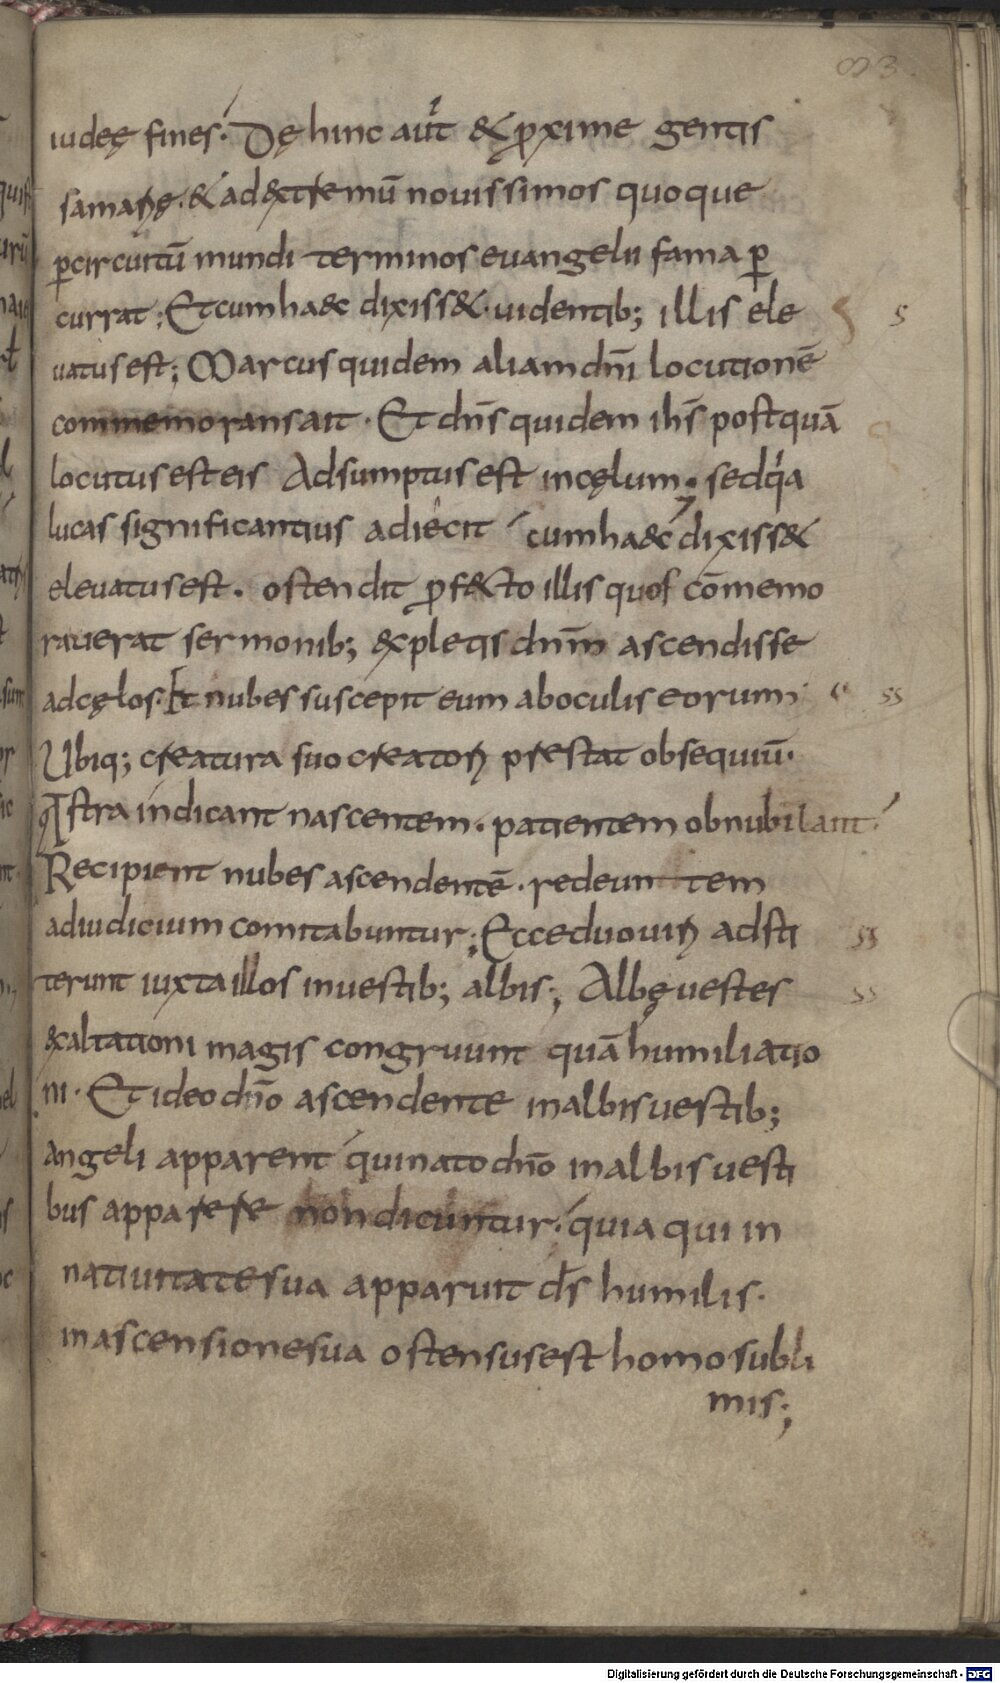 iudeę fines. Dęhinc aut̄ & ꝓxime gentis
samarię. & ad &xtremū nouissimos quoque
ꝑcircuitū mundi terminos euangelii fama ꝑ
currat; Et cum haec dixiss&. uidentib; illis ele
uatus est; Marcus quidem aliam dn̄i locutionē
commemorans ait. Et dn̄s quidem ih̄s postquā
locutus est eis Adsumptus est in cęlum. sed qa
lucas significantius adiecit cum haec dixiss&
eleuatus est. ostendit ꝓf&to illis quos cōmemo
rauerat sermonib; &xpletis dnm̄ ascendisse
ad cęlos. Et nubes suscepit eum ab oculis eorum
Ubiq; creatura suo creatori prestat obsequiū.
Astra indicant nascentem. patientem obnubilant.
Recipient nubes ascendentē. redeuntem
ad iudicium comitabuntur; Ecce duo uiri adsti
terunt iuxta illos in uestib; albis; Albę uestes
&xaltationi magis congruunt quā humiliatio
ni. Et ideo dn̄o ascendente in albis uestib;
angeli apparent qui nato dn̄o in albis uesti
bus apparere non dicuntur. quia qui in
natiuitate sua apparuit d̄s humilis.
in ascensione sua ostensus est homo subli
mis;
Digitalisierung gefördert durch die Deutsche Forschungsgemeinschaft - DFG